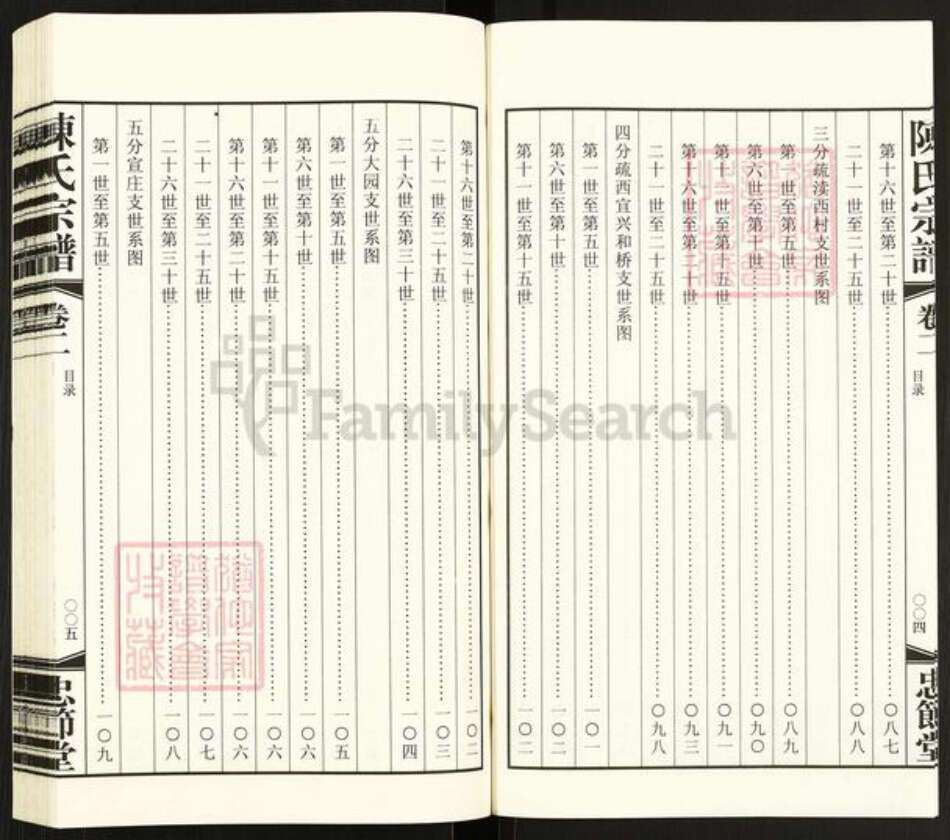 陳氏宗譜
卷二
目录
〇〇四
忠節堂
第十六世至第二十世 〇八七
二十一世至二十五世 〇八八
三分疏渎西村支世系图
第一世至第五世 〇八九
第六世至第十世 〇九〇
第十一世至第十五世 〇九一
第十六世至第二十世 〇九三
二十一世至二十五世 〇九八
四分疏西宣兴和桥支世系图
第一世至第五世 一〇一
第六世至第十世 一〇二
第十一世至第十五世
第十六世至第二十世
二十一世至二十五世
二十六世至第三十世 一〇四
五分大园支世系图
第一世至第五世 一〇五
第六世至第十世 一〇六
第十一世至第十五世 一〇六
第十六世至第二十世 一〇六
二十一世至二十五世 一〇七
二十六世至第三十世 一〇八
五分宣庄支世系图
第一世至第五世 一〇九
陳氏宗譜
卷二
目录
〇〇五
忠節堂
FamilySearch